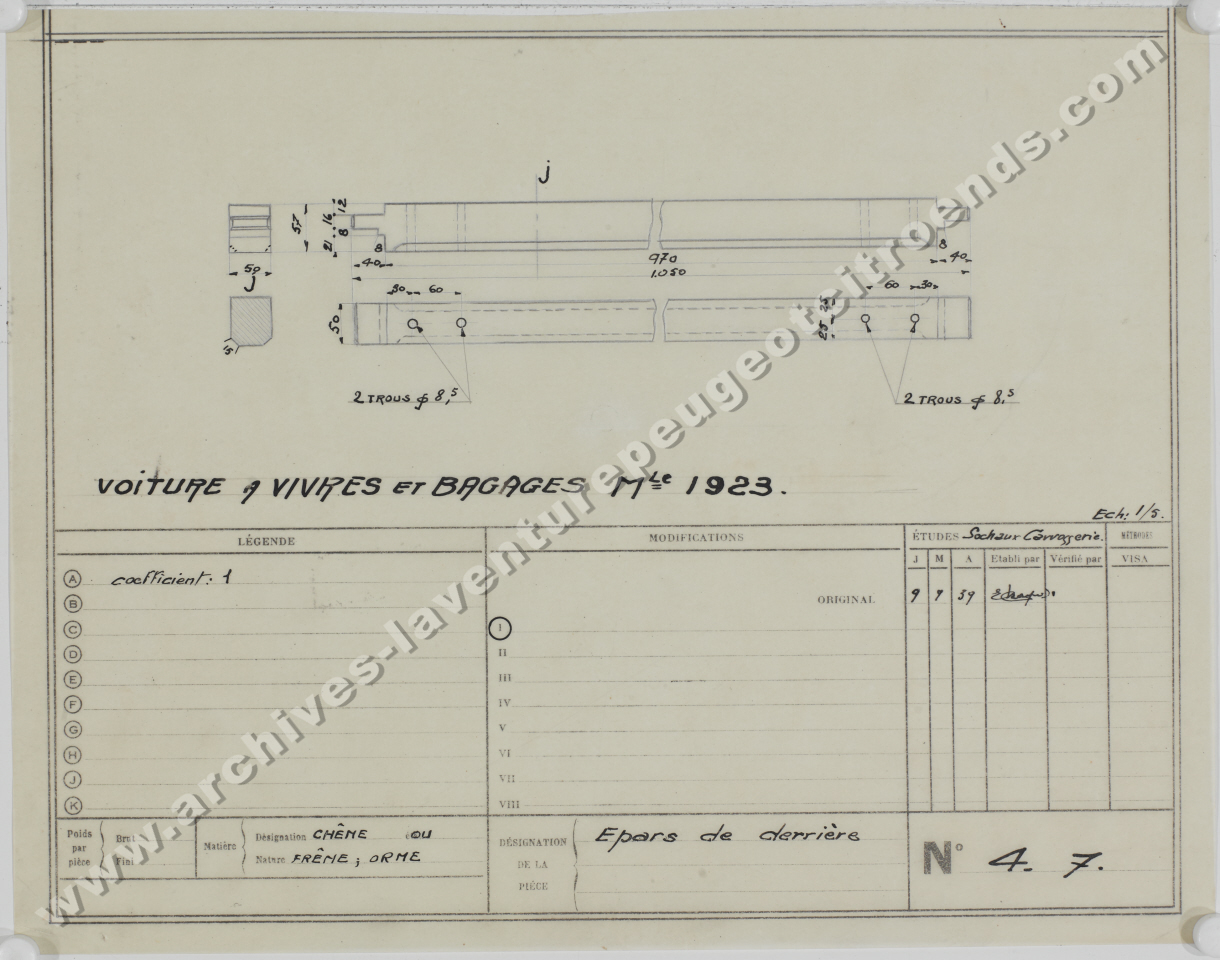 j
12
16
8
21
57
8
8
40
970
40
1.050
50
j
30
60
60
30
50
25
25
15
2 TROUS ϕ 8,5
2 TROUS ϕ 8,5
VOITURE A VIVRES ET BAGAGES MLE 1923.
Ech: 1/5.
LÉGENDE
MODIFICATIONS
ÉTUDES Sochaux Carrosserie.
MÉTHODES
J M A Etabli par Vérifié par VISA
A coefficient: 1
ORIGINAL 9 39
B
C
D
E
F
G
H
J
K
I
II
III
IV
V
VI
VII
VIII
Poids par pièce
Brut
Fini
Matière
Désignation CHÊNE OU
Nature FRÊNE; ORME
DÉSIGNATION
DE LA
PIÈCE
Epars de derrière
N° 4. 7.
www.archives-laventurepeugeotcitroends.com